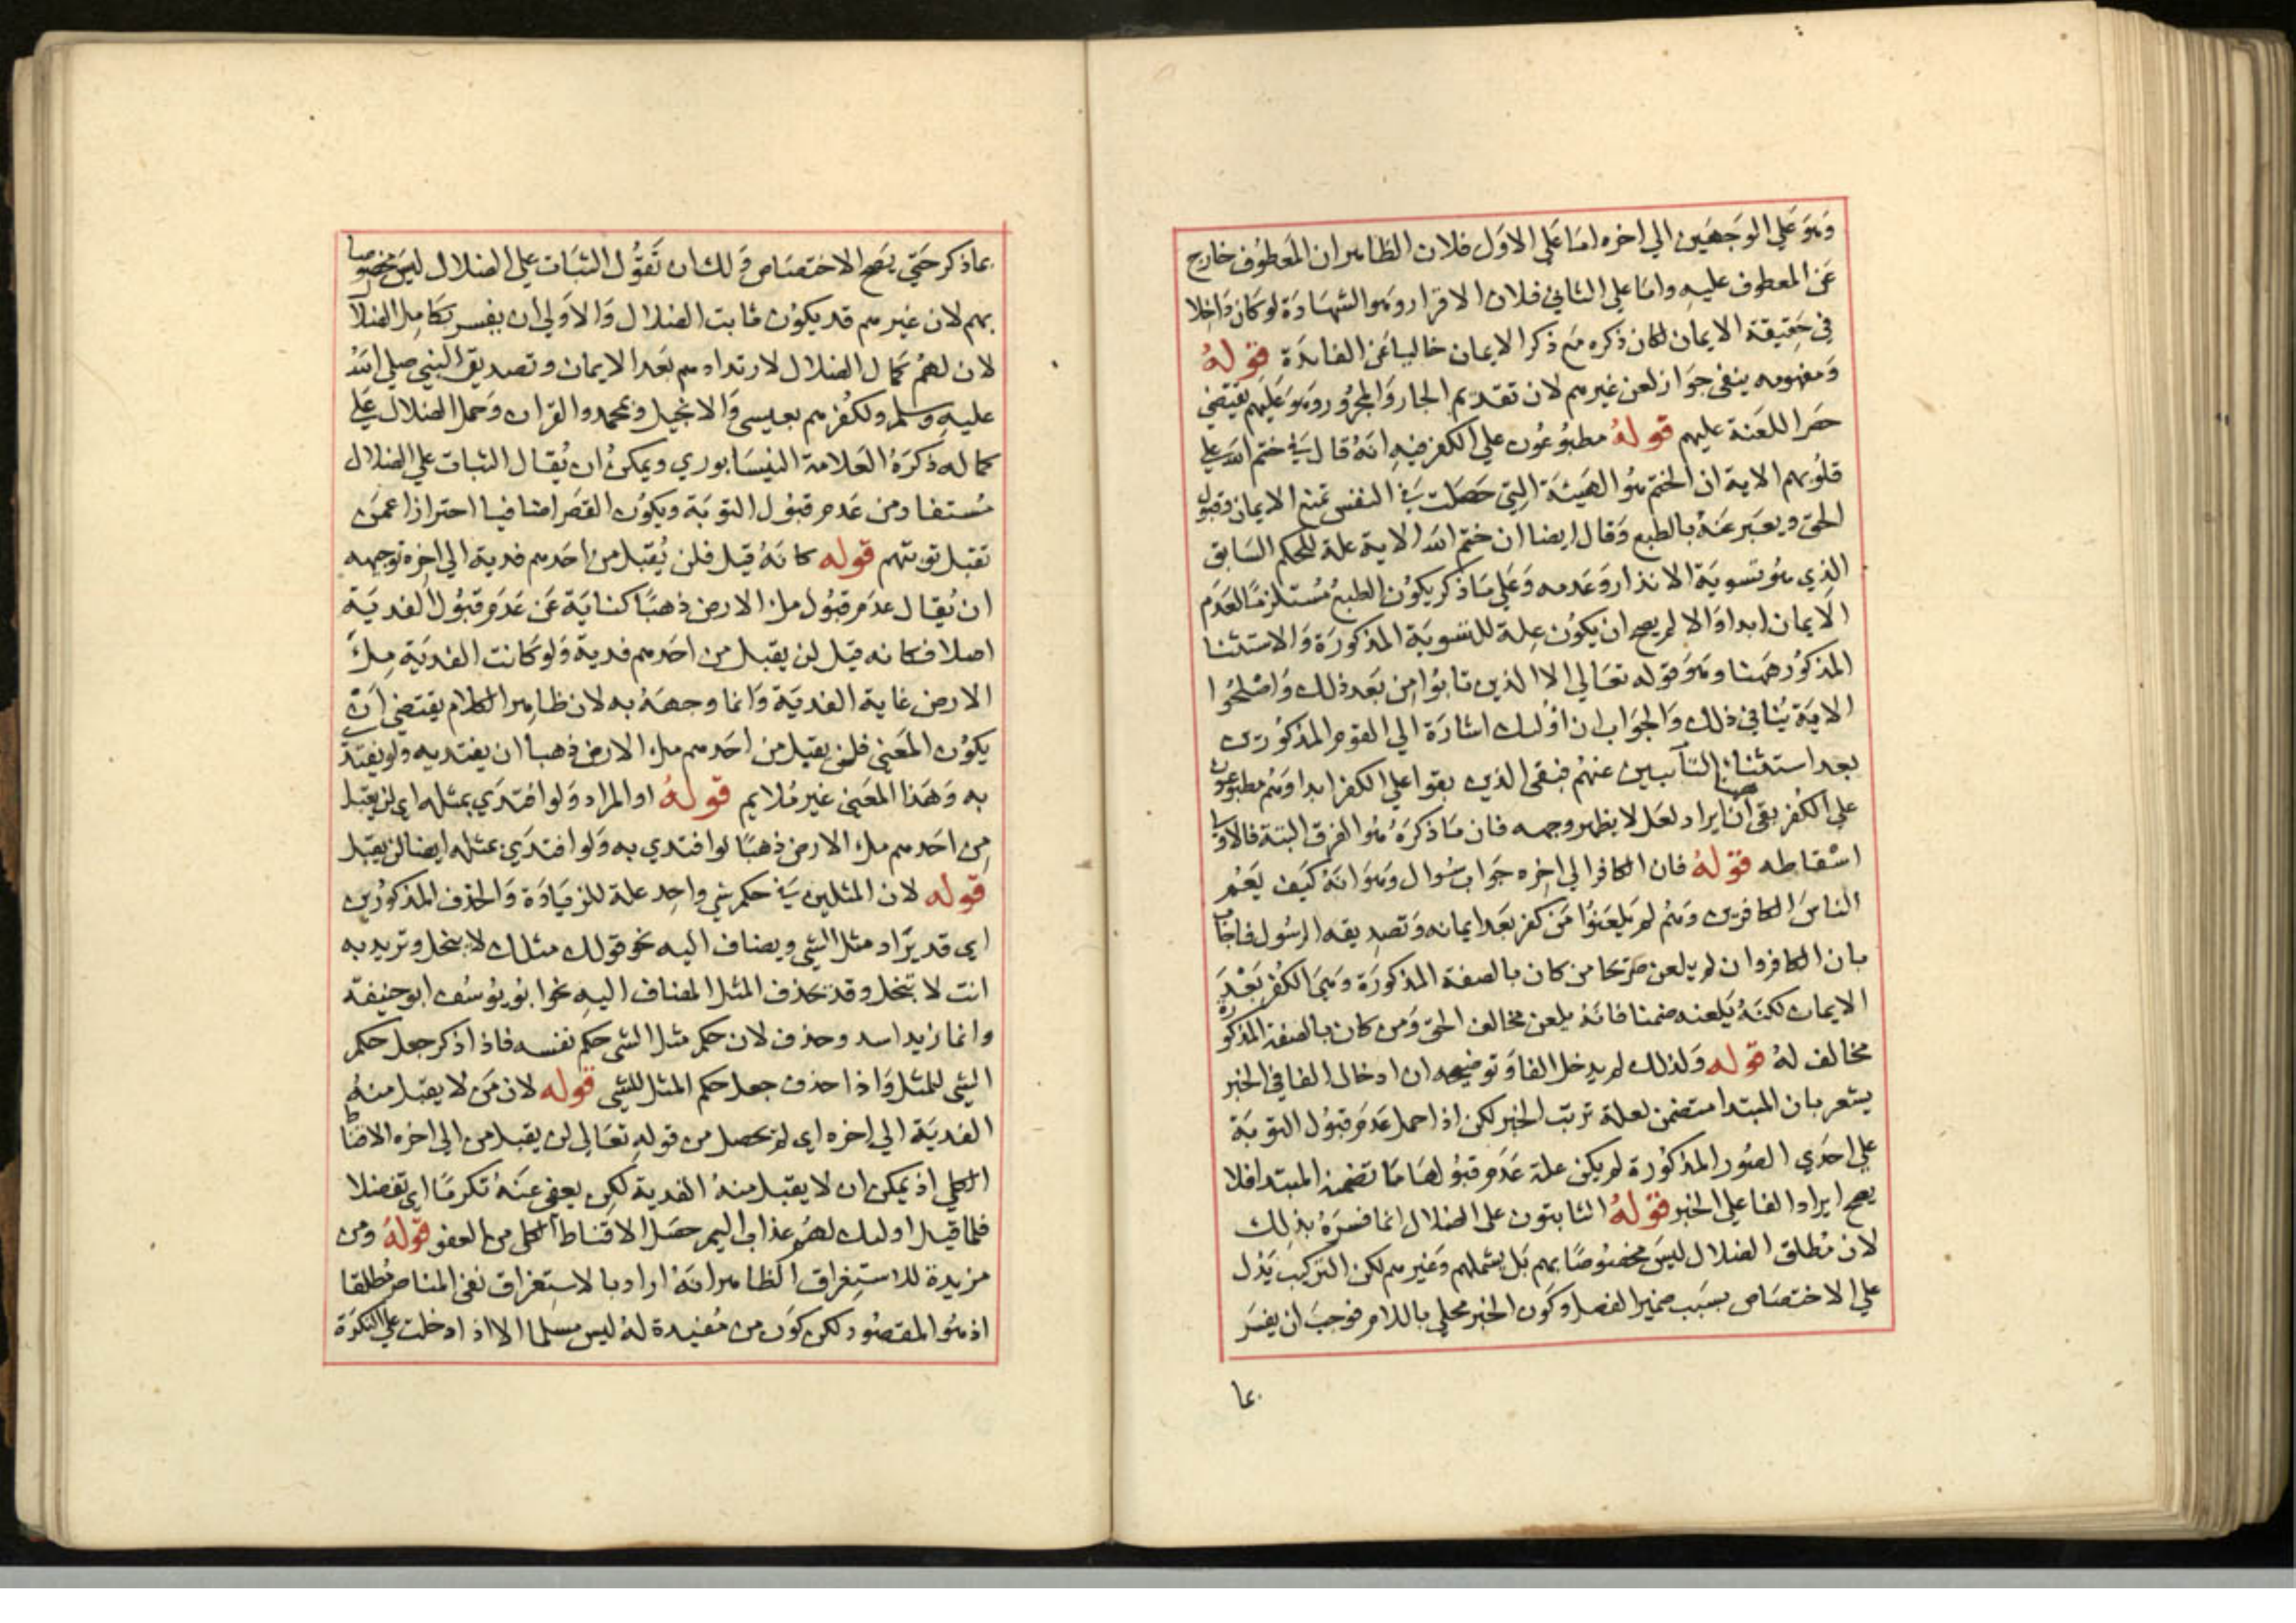 وهو علي الوجهين الي اخره اما علي الاول فلان الظاهر ان المعطوف خارج
عن المعطوف عليه واما علي الثاني فلان الاقرار وهو الشهادة لو كان داخلا
في حقيقة الايمان لكان ذكره مع ذكر الايمان خاليا عن الفايدة قوله
ومفهومه ينفي جواز لعن غيرهم لان تقديم الجار والمجرور وهو عليهم يقتضي
حصر اللعنة عليهم قوله مطبوعون علي الكفر فيه انه قال في ختم الله علي
قلوبهم الاية ان الختم هو الهيئة التي حصلت في النفس تمنع الايمان وقبول
الحق ويعبر عنه بالطبع وقال ايضا ان ختم الله الاية علة للحكم السابق
الذي هو تسوية الانذار وعدمه وعلي ما ذكر يكون الطبع مستلزما لعدم
الايمان ابدا والا لم يصح ان يكون علة للتسوية المذكورة والاستثنا
المذكور ههنا وهو قوله تعالي الا الذين تابوا من بعد ذلك واصلحوا
الاية ينافي ذلك والجواب ان اولئك اشارة الي القوم المذكورين
بعد استثنا التآيبين عنهم فبقي الذين بقوا علي الكفر ابدا وهم مطبوعون
علي الكفر بقي ان ايراد لعل لا يظهر وجهه فان ما ذكره هو الفرق البتة فالاولي
اسقاطه قوله فان الكافر الي اخره جواب سوال وهو انه كيف يعم
الناس الكافرين وهم لم يلعنوا من كفر بعد ايمانه وتصديقه الرسول فاجاب
بان الكافر وان لم يلعن صريحا من كان بالصفة المذكورة وهي الكفر بعد
الايمان لكنه يلعنه ضمنا فانه يلعن مخالف الحق ومن كان بالصفة المذكورة
مخالف له قوله ولذلك لم يدخل الفا وتوضيحه ان ادخال الفا في الخبر
يشعر بان المبتدا متضمن لعلة ترتب الخبر لكن اذا حمل عدم قبول التوبة
علي احدي الصور المذكورة لم يكن علة عدم قبولها ما تضمن المبتدا فلا
يصح ايراد الفا علي الخبر قوله الثابتون علي الضلال انما فسره بذلك
لان مطلق الضلال ليس مخصوصا بهم بل يشملهم وغيرهم لكن التركيب يدل
علي الاختصاص بسبب ضمير الفصل وكون الخبر محلي باللام فوجب ان يفسر
بما
بما ذكر حتي يصح الاختصاص ولك ان تقول الثبات علي الضلال ليس مخصوصا
بهم لان غيرهم قد يكون ثابت الضلال والاولي ان يفسر بكامل الضلال
لان لهم كمال الضلال لارتدادهم بعد الايمان وتصديق النبي صلي الله
عليه وسلم ولكفرهم بعيسي والانجيل وبمحمد والقران وحمل الضلال علي
كماله ذكره العلامة النيسابوري ويمكن ان يقال الثبات علي الضلال
مستفاد من عدم قبول التوبة ويكون القصر اضافيا احترازا عمن
تقبل توبتهم قوله كانه قيل فلن يقبل من احدهم فدية الي اخره توجيهه
ان يقال عدم قبول ملء الارض ذهبا كناية عن عدم قبول الفدية
اصلا فكانه قيل لن يقبل من احدهم فدية ولو كانت الفدية ملء
الارض غاية الفدية وانما وجهه به لان ظاهر الكلام يقتضي ان
يكون المعني فلن يقبل من احدهم ملء الارض ذهبا ان يفتدي به ولو يفتدي
به وهذا المعني غير ملايم قوله او المراد ولو افتدي بمثله اي لن يقبل
من احدهم ملء الارض ذهبا لو افتدي به ولو افتدي بمثله ايضا لن يقبل
قوله لان المثلين في حكم شي واحد علة للزيادة والحذف المذكورين
اي قد يزاد مثل الشي ويضاف اليه نحو قولك مثلك لا يبخل وتريد به
انت لا تبخل وقد تحذف المثل المضاف اليه نحو ابو يوسف ابو حنيفة
وانما زيد اسد وحذف لان حكم مثل الشي حكم نفسه فاذا ذكر جعل حكم
الشي للمثل واذا حذف جعل حكم المثل للشي قوله لان من لا يقبل منه
الفدية الي اخره اي لم يحصل من قوله تعالي لن يقبل من الي اخره الاقناط
الكلي اذ يمكن ان لا يقبل منه الفدية لكن يعفي عنه تكرما اي تفضلا
فلما قيل اوليك لهم عذاب اليم حصل الاقناط الكلي من العفو قوله ومن
مزيدة للاستغراق الظاهر انه اراد بالاستغراق نفي المناصر مطلقا
اذ هو المقصود لكن كون من مفيدة له ليس مسلما الا اذا دخلت علي النكرة